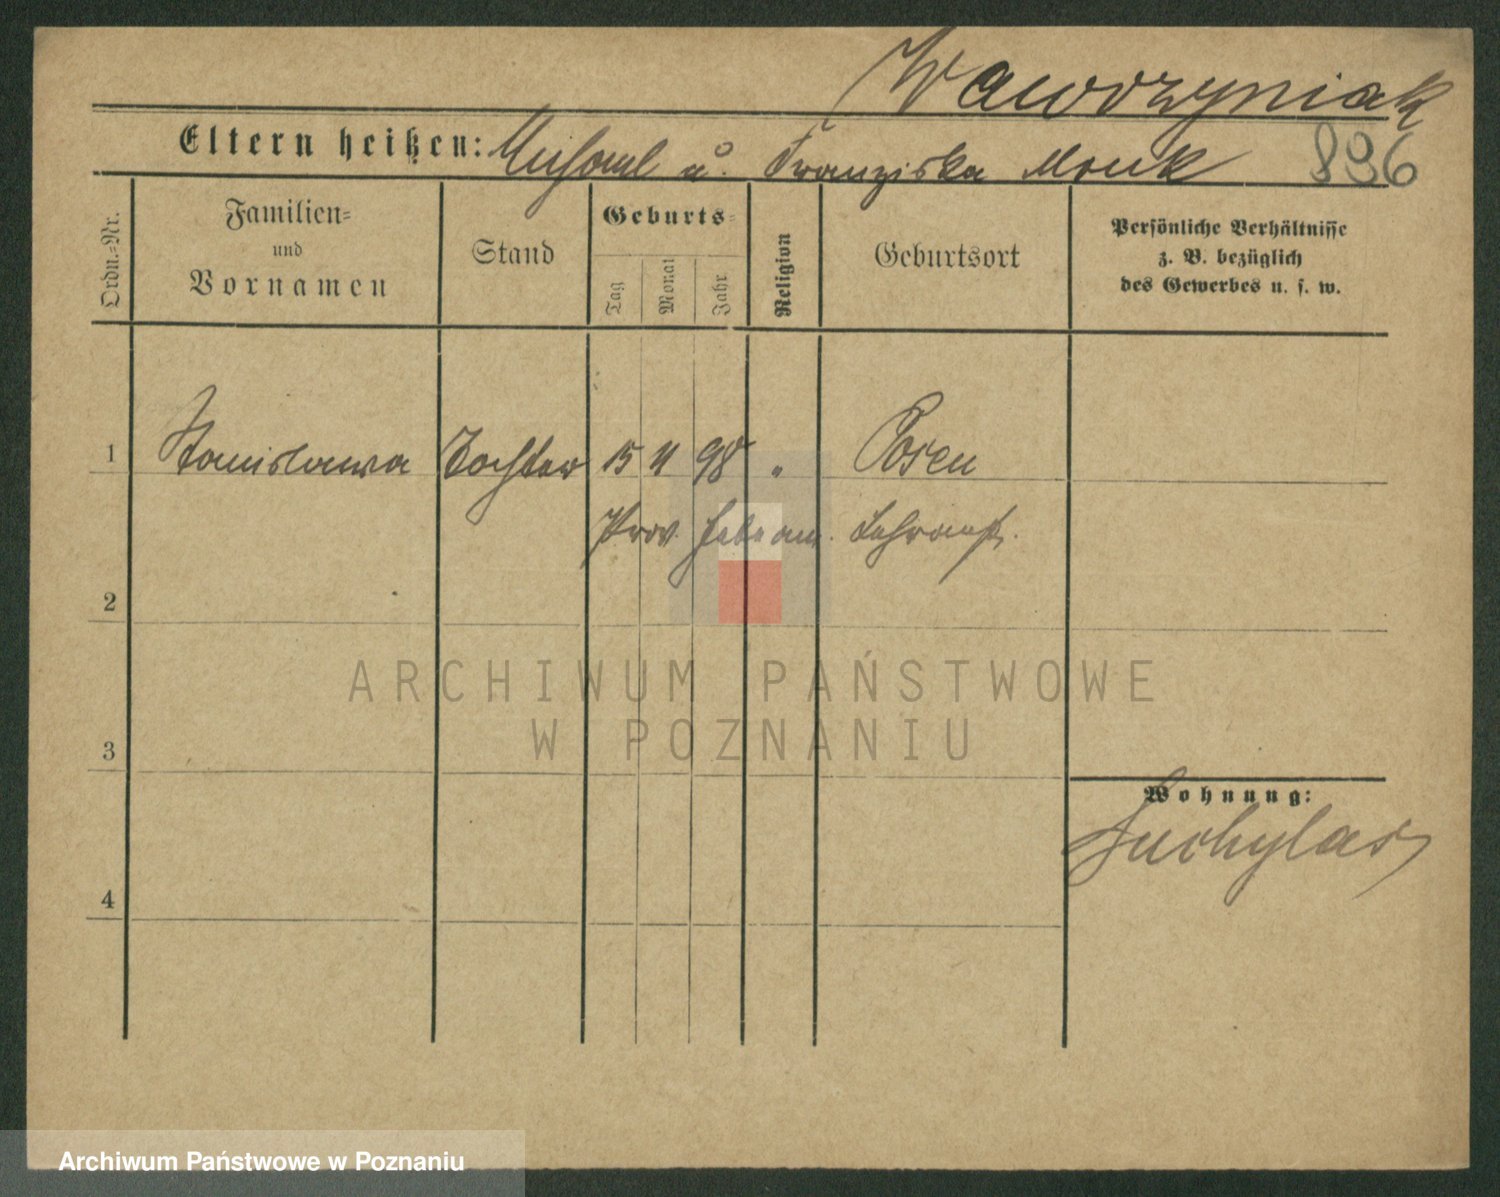 Wawrzyniak
Eltern heißen: Michael u. Franziska Monk 896
Ordn.=Nr.
Familien=
und
Vornamen
Stand
Geburts=
Tag
Monat
Jahr
Religion
Geburtsort
Persönliche Verhältnisse
z. B. bezüglich
des Gewerbes u. s. w.
1 Stanislawa Tochter 15 4 98 " Posen
Prov.
2
ARCHIWUM PAŃSTWOWE
W POZNANIU
3
Wohnung:
Suchylas
4
Archiwum Państwowe w Poznaniu